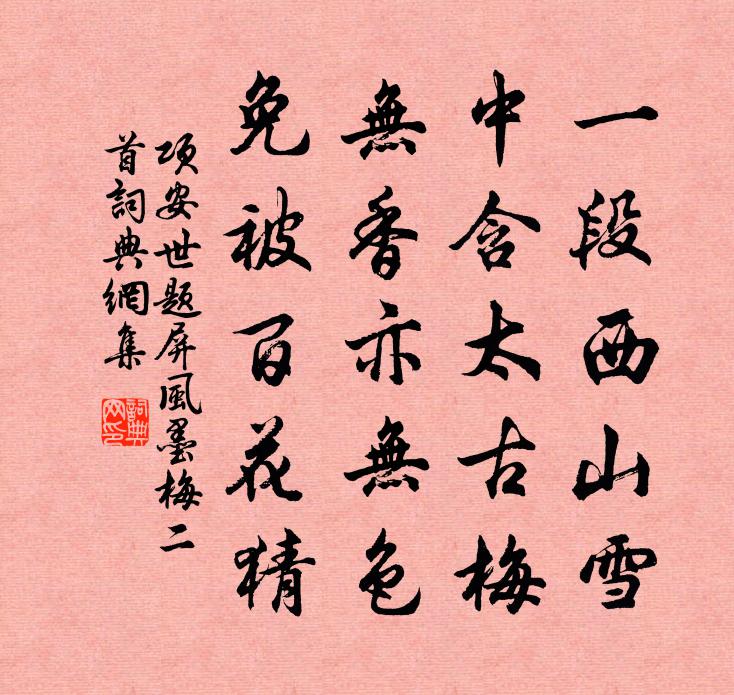 一段西山雪
中含太古梅
無香亦無色
免被百花猜
項安世題屏風墨梅二
首詞典網集
詞典网印